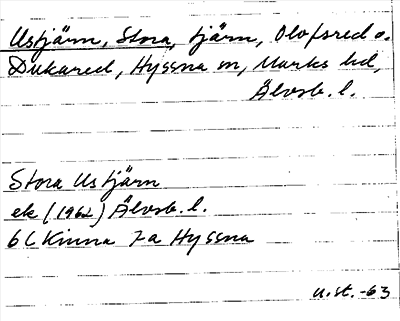 Ustjärn, Stora, tjärn, Olofsred o.
Dukared, Hyssna sn, Marks hd,
Älvsb. l.
Stora Ustjärn
ek (1962) Älvsb. l.
6 C Kinna 7a Hyssna
u.st. -63